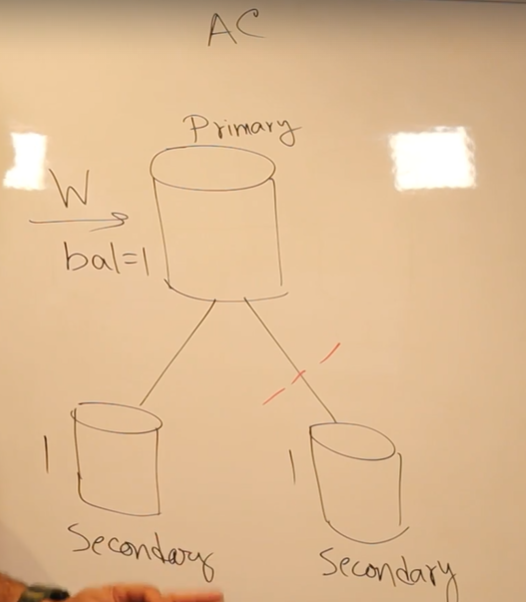 AC
Primary
W
bal=1
1
1
Secondary
Secondary